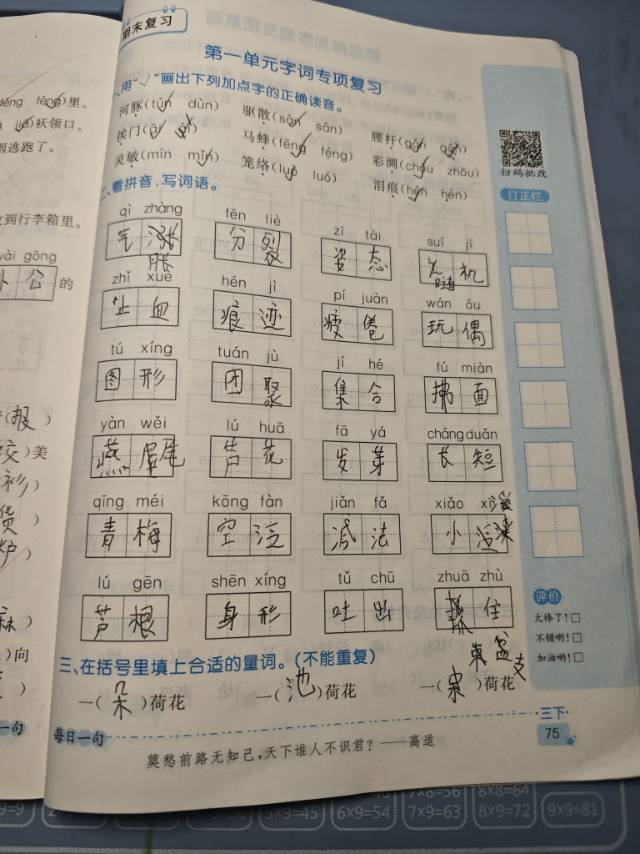 期末复习
第一单元字词专项复习
一、用“√”画出下列加点字的正确读音。
河豚(tún dùn) 驱散(sàn sǎn) 腰杆(gǎn gān)
挨门(āi ái) 马蜂(fēng féng) 彩绸(chóu zhōu)
灵敏(mín mǐn) 笼络(luò luó) 泪痕(hén hēn)
二、看拼音,写词语。
qì zhàng fēn liè zī tài suí jī
气 胀 分 裂 姿 态 随 机
zhǐ xuè hén jì pí juàn wán ǒu
止 血 痕 迹 疲 倦 玩 偶
tú xíng tuán jù jí hé fú miàn
图 形 团 聚 集 合 拂 面
yàn wěi lú huā fā yá cháng duǎn
燕 尾 芦 花 发 芽 长 短
qīng méi kōng fàn jiǎn fǎ xiǎo xī
青 梅 空 泛 减 法 小 溪
lú gēn shēn xíng tǔ chū zhuā zhù
芦 根 身 形 吐 出 抓 住
三、在括号里填上合适的量词。(不能重复)
束 盆 支
一( 朵 )荷花 一( 池 )荷花 一( )荷花
每日一句
莫愁前路无知己,天下谁人不识君?——高适
扫码批改
订正栏
评价
太棒了!□
不错哟!□
加油哟!□
三下
75
téng)里。
袄领口。
逃跑了。
到行李箱里。
gōng
公 的
(报 )
)美
)向
一句
7×8=56 8×8=64
5×9=45 6×9=54 7×9=63 8×9=72 9×9=81